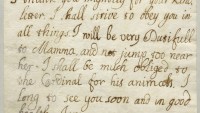 letter. I shall strive to obey you in
all things. I will be very Dutifull
to Mamma, and not jump too near
her. I shall be much obliged to
the Cardinal for his animals, I
long to see you soon and in good